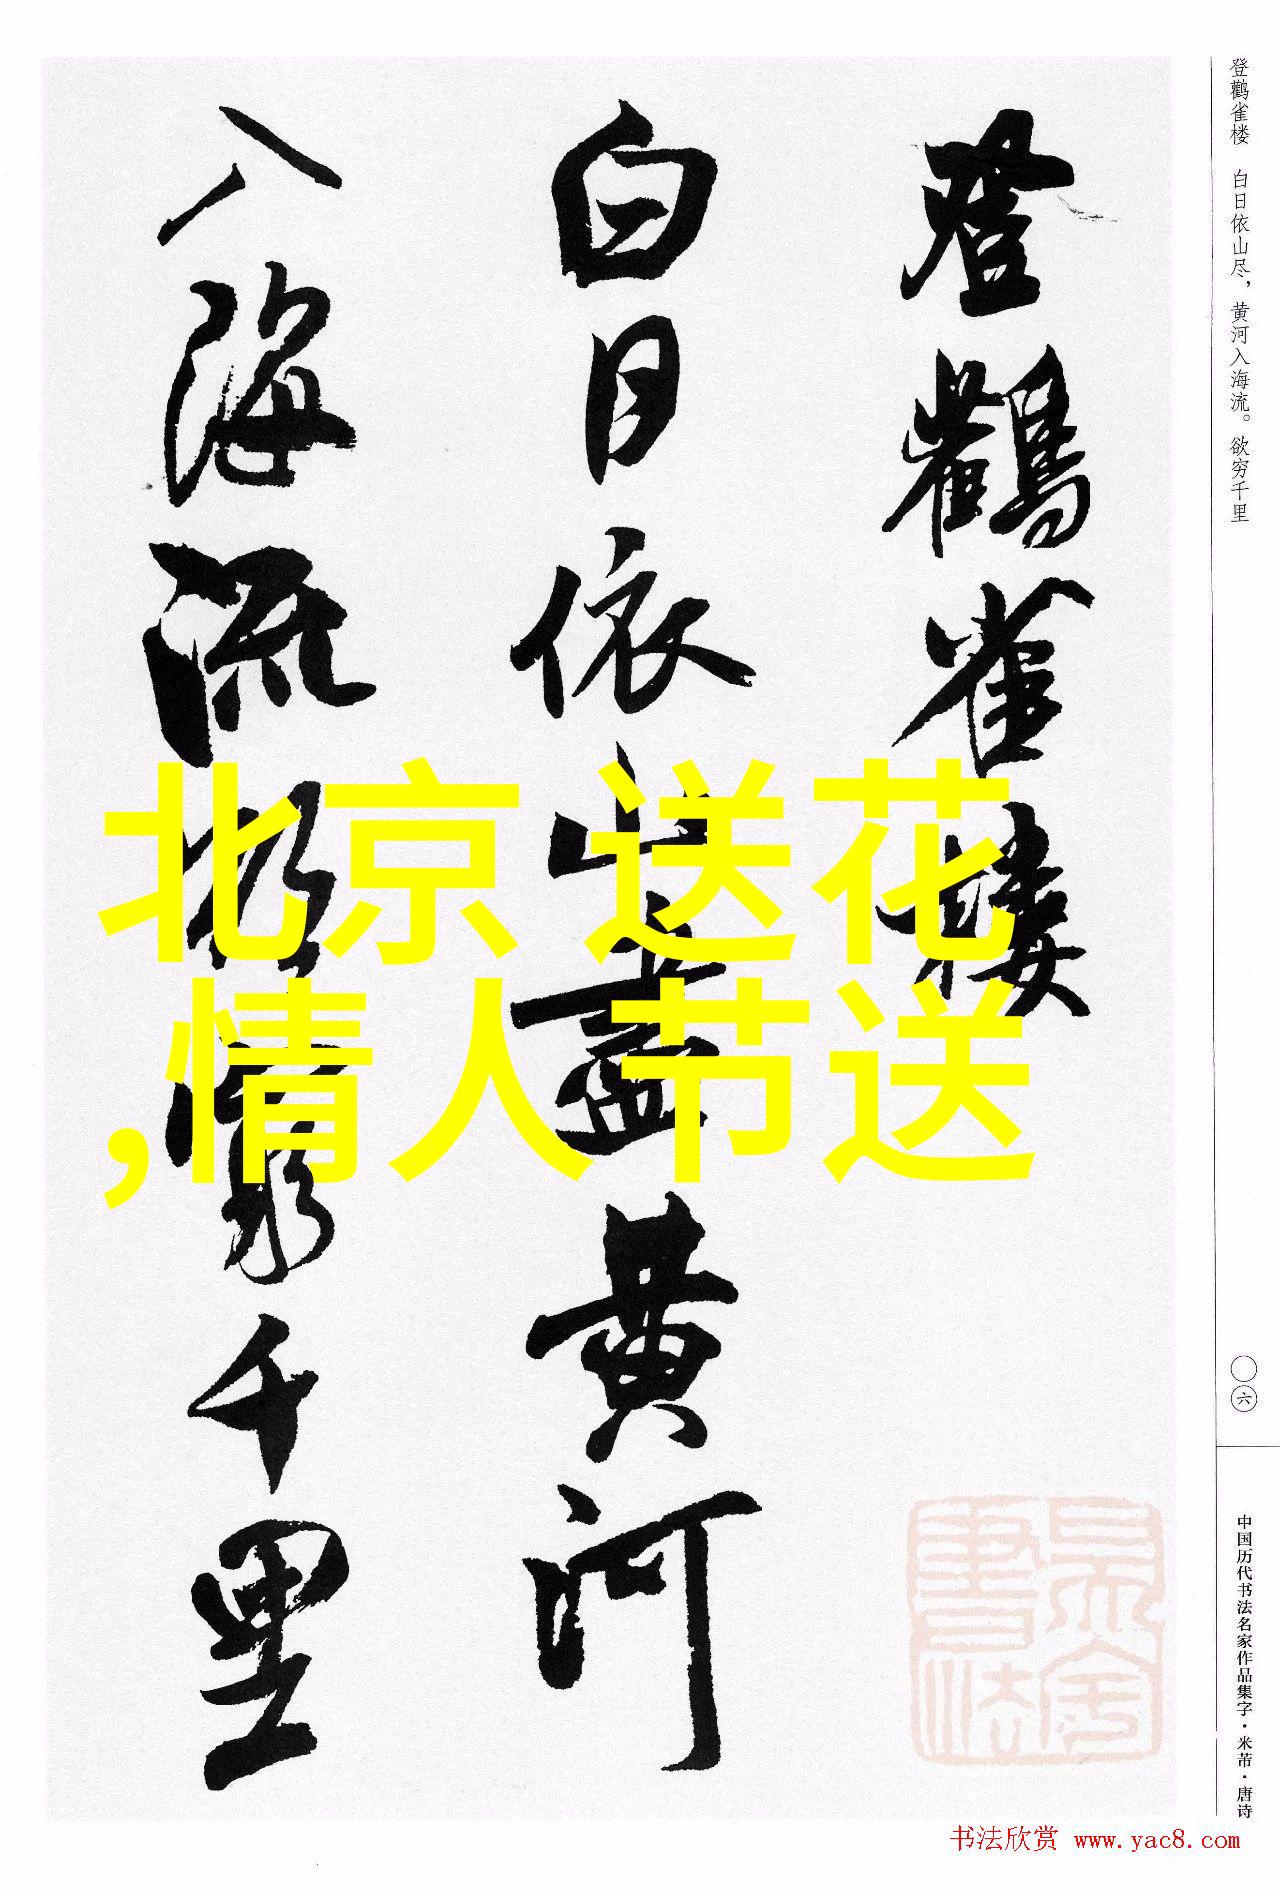 登鸛雀樓
白日依山盡黄河
入海流欲窮千里
北京 送花
,情人节送
登鹳雀楼 白日依山尽，黄河入海流。欲穷千里
〇六
中国历代书法名家作品集字·米芾·唐诗
书法欣赏 www.yac8.com